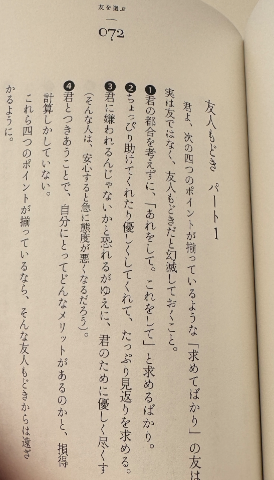 友を選ぶ
072
友人もどき パート1
君よ、次の四つのポイントが揃っているような「求めてばかり」の友は
実は友ではなく、友人もどきだと幻滅しておくこと。
❶君の都合を考えずに、「あれをして。これをして」と求めるばかり。
❷ちょっぴり助けてくれたり優しくしてくれて、たっぷり見返りを求める。
❸君に嫌われるんじゃないかと恐れるがゆえに、君のために優しく尽くす
（そんな人は、安心すると急に態度が悪くなるだろう）。
❹君とつきあうことで、自分にとってどんなメリットがあるのかと、損得
計算しかしていない。
これら四つのポイントが揃っているなら、そんな友人もどきからは遠ざ
かるように。